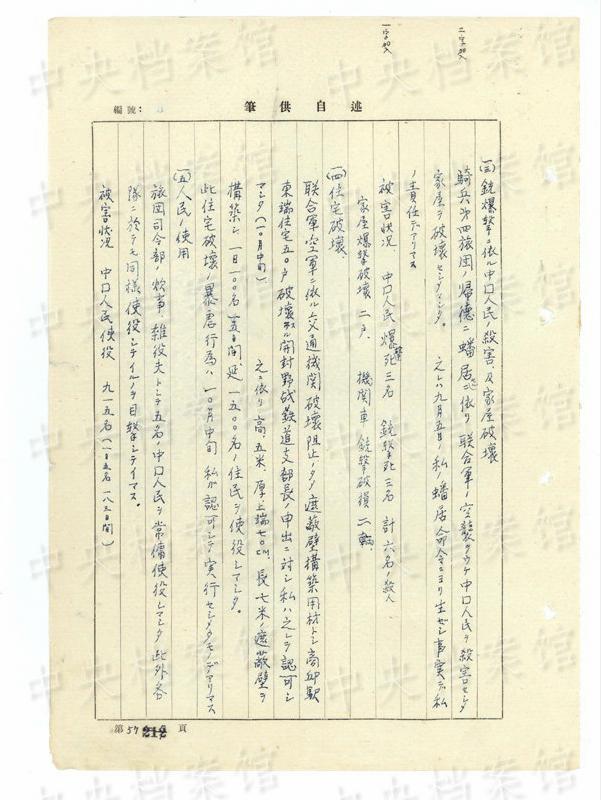 二字加入
一字加入
筆供自述
編號:
(三)銃爆撃ニ依ル中国人民ノ殺害、及家屋破壊
騎兵第四旅団ノ帰徳ニ蟠居ニ依リ 聯合軍ノ空襲ヲウケ中国人民ヲ殺害セシメ
家屋ヲ破壊セシメマシタ。 之レハ九月五日ノ私ノ蟠居命令ニヨリ生ゼシ事実デ私
ノ責任デアリマス
被害状況 中国人民 爆撃死三名 銃撃死三名 計六名ノ殺人
家屋爆撃破壊 二戸、 機関車 銃撃破損 二輌、
(四)住宅破壊、
聯合軍ノ空軍ニ依ル交通機関破壊阻止ノタメ遮蔽壁構築用材トシ商邱駅
東端住宅五〇戸破壊スル開封野戦鉄道支部長ノ申出ニ対シ私ハ之レヲ認可シ
マシタ(一〇月中旬) 之ニ依リ高、五米、厚上端七〇cm、長七米ノ遮蔽壁ヲ
構築シ 一日一〇〇名(一五日間)延 一五〇〇名ノ住民ヲ使役シマシタ。
此住宅破壊ノ暴虐行為ハ一〇月中旬 私ガ認可シテ実行セシメタモノデアリマス
(五)人民ノ使用
旅団司令部ノ炊事、雑役夫トシテ五名ノ中国人民ヲ常傭使役シマシタ 此外各
隊ニ於テモ同様使役シテイルノヲ目撃シテイマス。
被害状況 中国人民使役 九一五名(一日五名一八三日間)
第57 212 頁
中央档案馆